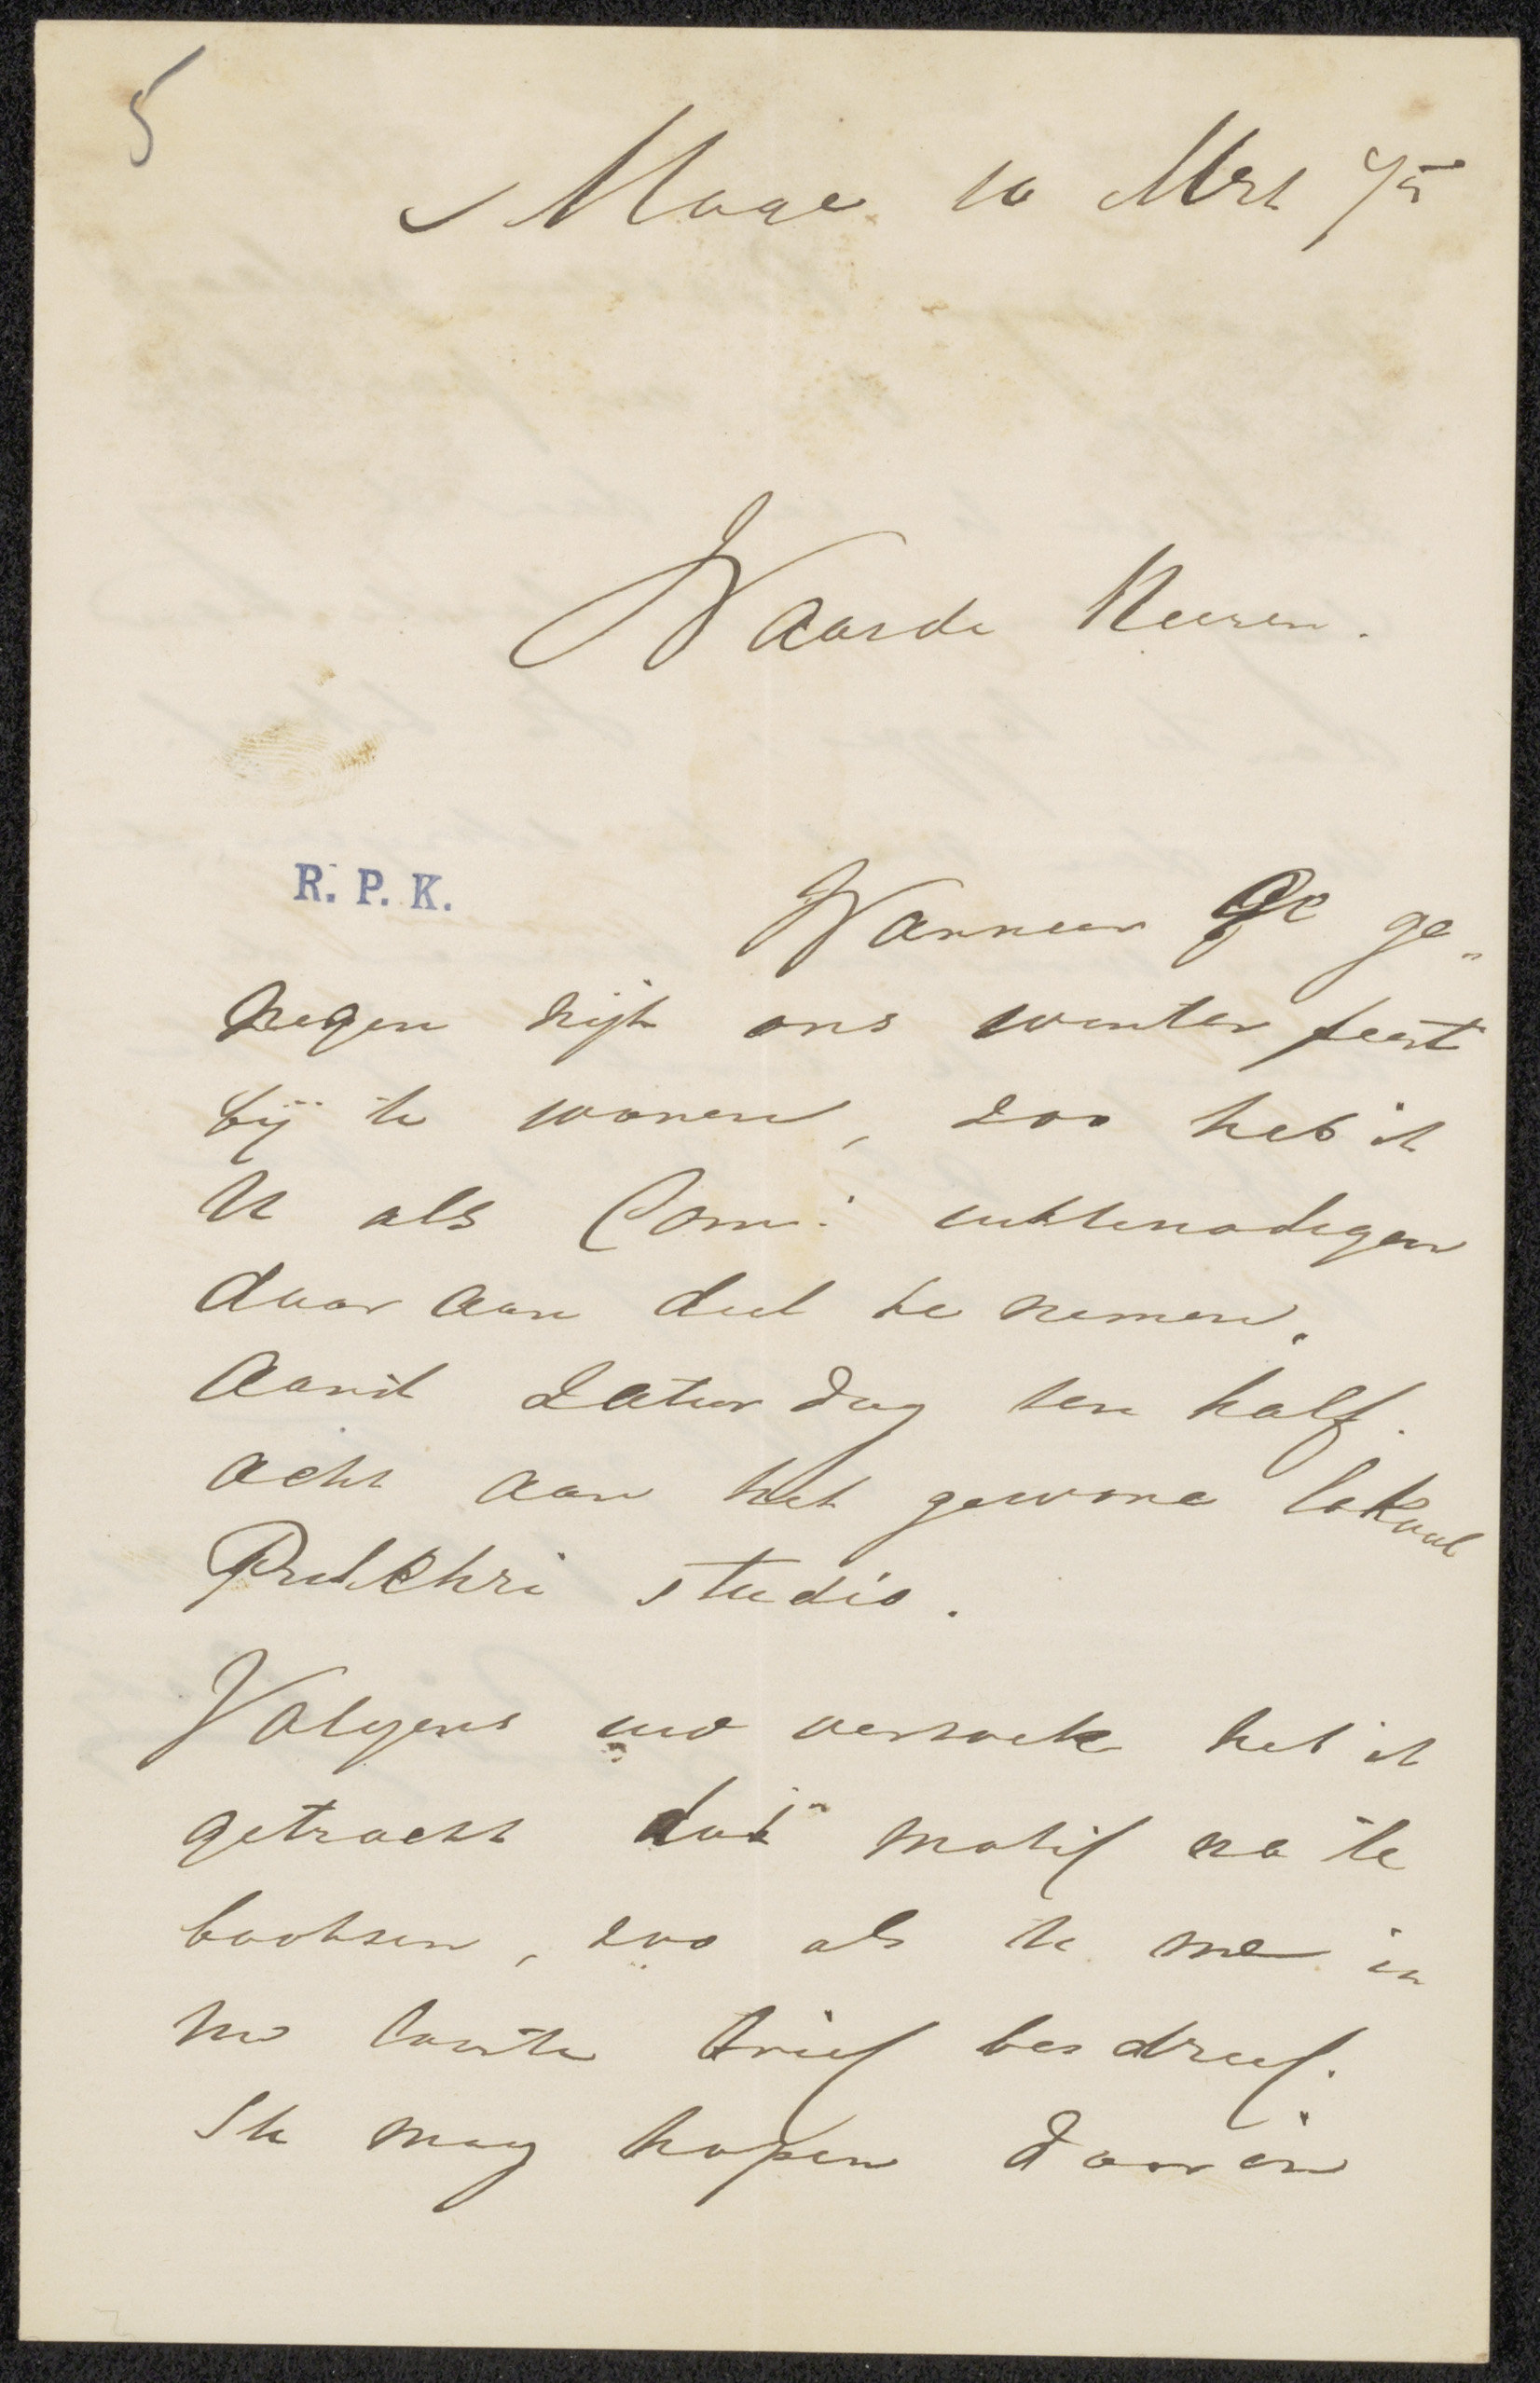 5
Hage 10 Mrt 75
Waarde Heeren.
R. P. K.
Wanneer ge ge„
negen zijt ons winter feest
bij te wonen, zoo heb ik
U als Com: uittenodigen
daar aan deel te nemen.
Aanst Zatur dag ten half.
acht aan het gewone lokaal
Pulchri studio.
Volgens uw verzoek heb ik
getracht dat motif na te
bootsen, zoo als U me in
Uw laaste brief beschreef.
Ik mag hopen daar in